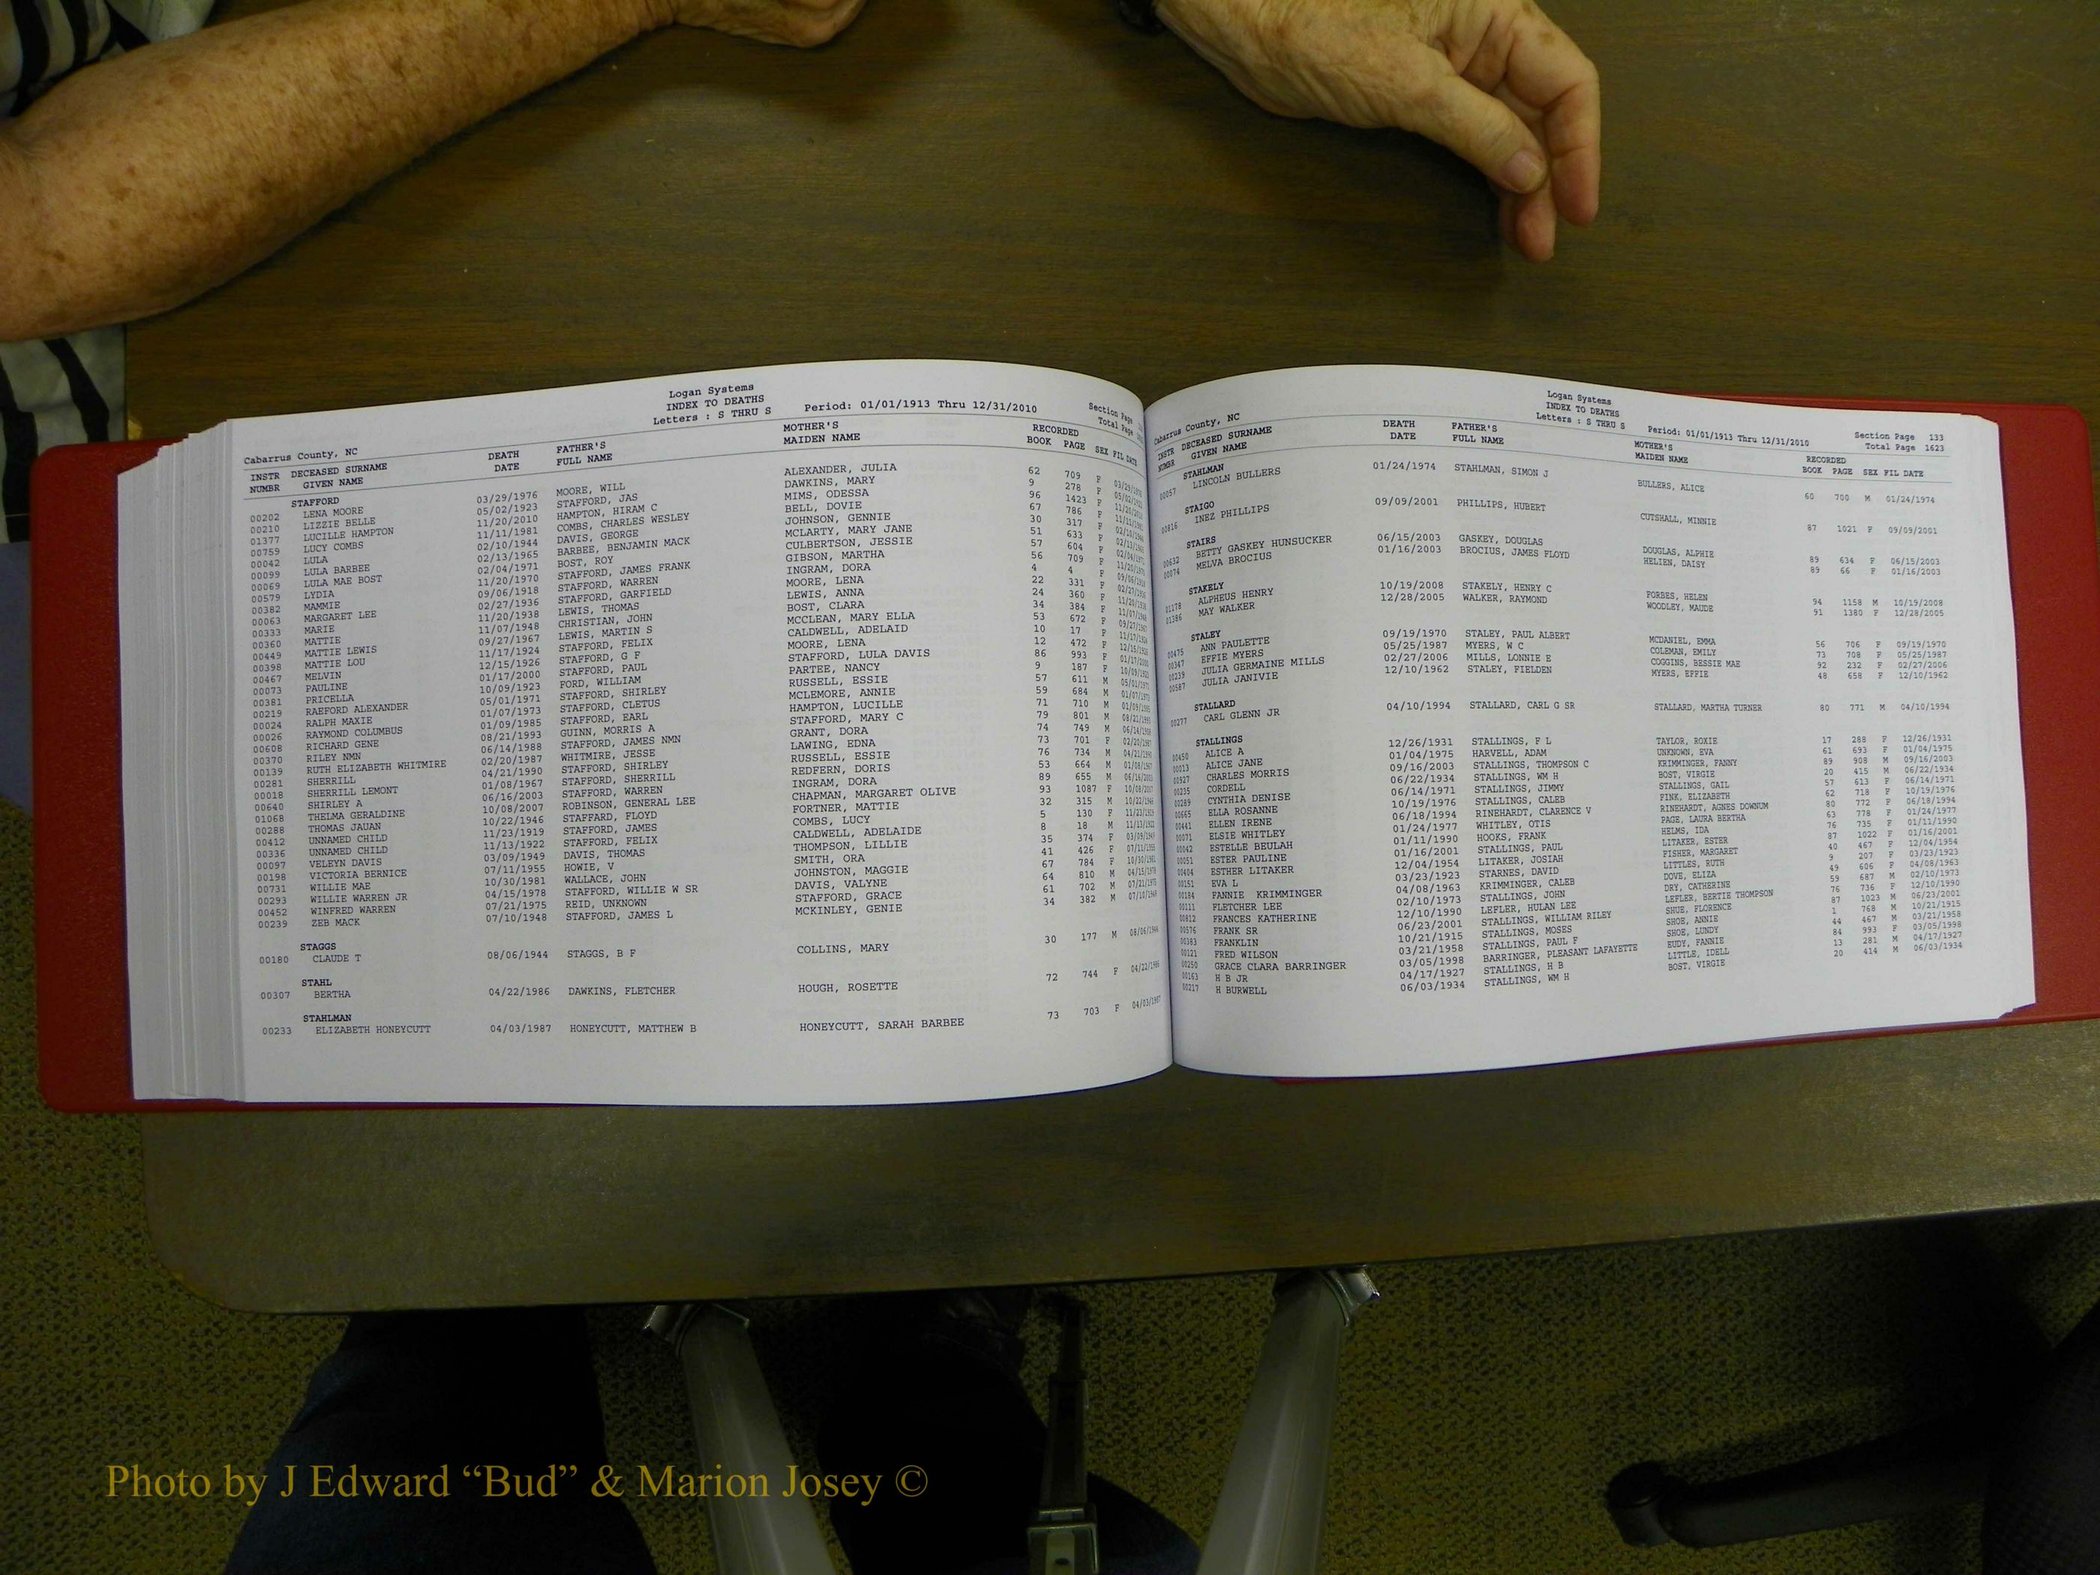 Logan Systems
INDEX TO DEATHS
Letters : S THRU S Period: 01/01/1913 Thru 12/31/2010 Section Page
Cabarrus County, NC Total Page
INSTR DECEASED SURNAME DEATH FATHER'S MOTHER'S RECORDED
NUMBR GIVEN NAME DATE FULL NAME MAIDEN NAME BOOK PAGE SEX FIL DATE
STAFFORD
00202 LENA MOORE 03/29/1976 MOORE, WILL ALEXANDER, JULIA 62 709 F 03/29/1976
00210 LIZZIE BELLE 05/02/1923 STAFFORD, JAS DAWKINS, MARY 9 278 F 05/02/1923
01377 LUCILLE HAMPTON 11/20/2010 HAMPTON, HIRAM C MIMS, ODESSA 96 1423 F 11/20/2010
00759 LUCY COMBS 11/11/1981 COMBS, CHARLES WESLEY BELL, DOVIE 67 786 F 11/11/1981
00042 LULA 02/10/1944 DAVIS, GEORGE JOHNSON, GENNIE 30 317 F 02/10/1944
00099 LULA BARBEE 02/13/1965 BARBEE, BENJAMIN MACK MCLARTY, MARY JANE 51 633 F 02/13/1965
00069 LULA MAE BOST 02/04/1971 BOST, ROY CULBERTSON, JESSIE 57 604 F 02/04/1971
00579 LYDIA 11/20/1970 STAFFORD, JAMES FRANK GIBSON, MARTHA 56 709 F 11/20/1970
00382 MAMMIE 09/06/1918 STAFFORD, WARREN INGRAM, DORA 4 4 F 09/06/1918
00063 MARGARET LEE 02/27/1936 STAFFORD, GARFIELD MOORE, LENA 22 331 F 02/27/1936
00333 MARIE 11/20/1938 LEWIS, THOMAS LEWIS, ANNA 24 360 F 11/20/1938
00360 MATTIE 11/07/1948 CHRISTIAN, JOHN BOST, CLARA 34 384 F 11/07/1948
00449 MATTIE LEWIS 09/27/1967 LEWIS, MARTIN S MCCLEAN, MARY ELLA 53 672 F 09/27/1967
00398 MATTIE LOU 11/17/1924 STAFFORD, FELIX CALDWELL, ADELAID 10 17 F 11/17/1924
00467 MELVIN 12/15/1926 STAFFORD, G F MOORE, LENA 12 472 F 12/15/1926
00073 PAULINE 01/17/2000 STAFFORD, PAUL STAFFORD, LULA DAVIS 86 993 F 01/17/2000
00381 PRICELLA 10/09/1923 FORD, WILLIAM PARTEE, NANCY 9 187 F 10/09/1923
00219 RAEFORD ALEXANDER 05/01/1971 STAFFORD, SHIRLEY RUSSELL, ESSIE 57 611 M 05/01/1971
00024 RALPH MAXIE 01/07/1973 STAFFORD, CLETUS MCLEMORE, ANNIE 59 684 M 01/07/1973
00026 RAYMOND COLUMBUS 01/09/1985 STAFFORD, EARL HAMPTON, LUCILLE 71 710 M 01/09/1985
00608 RICHARD GENE 08/21/1993 GUINN, MORRIS A STAFFORD, MARY C 79 801 M 08/21/1993
00370 RILEY NMN 06/14/1988 STAFFORD, JAMES NMN GRANT, DORA 74 749 M 06/14/1988
00139 RUTH ELIZABETH WHITMIRE 02/20/1987 WHITMIRE, JESSE LAWING, EDNA 73 701 F 02/20/1987
00281 SHERRILL 04/21/1990 STAFFORD, SHIRLEY RUSSELL, ESSIE 76 734 M 04/21/1990
00018 SHERRILL LEMONT 01/08/1967 STAFFORD, SHERRILL REDFERN, DORIS 53 664 M 01/08/1967
00640 SHIRLEY A 06/16/2003 STAFFORD, WARREN INGRAM, DORA 89 655 M 06/16/2003
01068 THELMA GERALDINE 10/08/2007 ROBINSON, GENERAL LEE CHAPMAN, MARGARET OLIVE 93 1087 F 10/08/2007
00288 THOMAS JAUAN 10/22/1946 STAFFARD, FLOYD FORTNER, MATTIE 32 315 M 10/22/1946
00412 UNNAMED CHILD 11/23/1919 STAFFORD, JAMES COMBS, LUCY 5 130 F 11/23/1919
00336 UNNAMED CHILD 11/13/1922 STAFFORD, FELIX CALDWELL, ADELAIDE 8 18 M 11/13/1922
00097 VELEYN DAVIS 03/09/1949 DAVIS, THOMAS THOMPSON, LILLIE 35 374 F 03/09/1949
00198 VICTORIA BERNICE 07/11/1955 HOWIE, V SMITH, ORA 41 426 F 07/11/1955
00731 WILLIE MAE 10/30/1981 WALLACE, JOHN JOHNSTON, MAGGIE 67 784 F 10/30/1981
00293 WILLIE WARREN JR 04/15/1978 STAFFORD, WILLIE W SR DAVIS, VALYNE 64 810 M 04/15/1978
00452 WINFRED WARREN 07/21/1975 REID, UNKNOWN STAFFORD, GRACE 61 702 M 07/21/1975
00239 ZEB MACK 07/10/1948 STAFFORD, JAMES L MCKINLEY, GENIE 34 382 M 07/10/1948
STAGGS
00180 CLAUDE T 08/06/1944 STAGGS, B F COLLINS, MARY 30 177 M 08/06/1944
STAHL
00307 BERTHA 04/22/1986 DAWKINS, FLETCHER HOUGH, ROSETTE 72 744 F 04/22/1986
STAHLMAN
00233 ELIZABETH HONEYCUTT 04/03/1987 HONEYCUTT, MATTHEW B HONEYCUTT, SARAH BARBEE 73 703 F 04/03/1987
Logan Systems
INDEX TO DEATHS
Letters : S THRU S Period: 01/01/1913 Thru 12/31/2010 Section Page 133
Cabarrus County, NC Total Page 1623
INSTR DECEASED SURNAME DEATH FATHER'S MOTHER'S RECORDED
NUMBR GIVEN NAME DATE FULL NAME MAIDEN NAME BOOK PAGE SEX FIL DATE
STAHLMAN
00057 LINCOLN BULLERS 01/24/1974 STAHLMAN, SIMON J BULLERS, ALICE 60 700 M 01/24/1974
STAIGO
00816 INEZ PHILLIPS 09/09/2001 PHILLIPS, HUBERT CUTSHALL, MINNIE 87 1021 F 09/09/2001
STAIRS
00632 BETTY GASKEY HUNSUCKER 06/15/2003 GASKEY, DOUGLAS DOUGLAS, ALPHIE 89 634 F 06/15/2003
00074 MELVA BROCIUS 01/16/2003 BROCIUS, JAMES FLOYD HELIEN, DAISY 89 66 F 01/16/2003
STAKELY
01178 ALPHEUS HENRY 10/19/2008 STAKELY, HENRY C FORBES, HELEN 94 1158 M 10/19/2008
01386 MAY WALKER 12/28/2005 WALKER, RAYMOND WOODLEY, MAUDE 91 1380 F 12/28/2005
STALEY
00475 ANN PAULETTE 09/19/1970 STALEY, PAUL ALBERT MCDANIEL, EMMA 56 706 F 09/19/1970
00347 EFFIE MYERS 05/25/1987 MYERS, W C COLEMAN, EMILY 73 708 F 05/25/1987
00239 JULIA GERMAINE MILLS 02/27/2006 MILLS, LONNIE E COGGINS, BESSIE MAE 92 232 F 02/27/2006
00587 JULIA JANIVIE 12/10/1962 STALEY, FIELDEN MYERS, EFFIE 48 658 F 12/10/1962
STALLARD
00277 CARL GLENN JR 04/10/1994 STALLARD, CARL G SR STALLARD, MARTHA TURNER 80 771 M 04/10/1994
STALLINGS
00450 ALICE A 12/26/1931 STALLINGS, F L TAYLOR, ROXIE 17 288 F 12/26/1931
00013 ALICE JANE 01/04/1975 HARVELL, ADAM UNKNOWN, EVA 61 693 F 01/04/1975
00927 CHARLES MORRIS 09/16/2003 STALLINGS, THOMPSON C KRIMMINGER, FANNY 89 908 M 09/16/2003
00235 CORDELL 06/22/1934 STALLINGS, WM H BOST, VIRGIE 20 415 M 06/22/1934
00289 CYNTHIA DENISE 06/14/1971 STALLINGS, JIMMY STALLINGS, GAIL 57 613 F 06/14/1971
00665 ELLA ROSANNE 10/19/1976 STALLINGS, CALEB FINK, ELIZABETH 62 718 F 10/19/1976
00441 ELLEN IRENE 06/18/1994 RINEHARDT, CLARENCE V RINEHARDT, AGNES DOWNUM 80 772 F 06/18/1994
00071 ELSIE WHITLEY 01/24/1977 WHITLEY, OTIS PAGE, LAURA BERTHA 63 778 F 01/24/1977
00042 ESTELLE BEULAH 01/11/1990 HOOKS, FRANK HELMS, IDA 76 735 F 01/11/1990
00051 ESTER PAULINE 01/16/2001 STALLINGS, PAUL LITAKER, ESTER 87 1022 F 01/16/2001
00404 ESTHER LITAKER 12/04/1954 LITAKER, JOSIAH FISHER, MARGARET 40 467 F 12/04/1954
00151 EVA L 03/23/1923 STARNES, DAVID LITTLES, RUTH 9 207 F 03/23/1923
00184 FANNIE KRIMMINGER 04/08/1963 KRIMMINGER, CALEB DOVE, ELIZA 49 606 F 04/08/1963
00111 FLETCHER LEE 02/10/1973 STALLINGS, JOHN DRY, CATHERINE 59 687 M 02/10/1973
00812 FRANCES KATHERINE 12/10/1990 LEFLER, HULAN LEE LEFLER, BERTIE THOMPSON 76 736 F 12/10/1990
00576 FRANK SR 06/23/2001 STALLINGS, WILLIAM RILEY SHUE, FLORENCE 87 1023 M 06/23/2001
00383 FRANKLIN 10/21/1915 STALLINGS, MOSES SHOE, ANNIE 1 768 M 10/21/1915
00121 FRED WILSON 03/21/1958 STALLINGS, PAUL F SHOE, LUNDY 44 467 M 03/21/1958
00250 GRACE CLARA BARRINGER 03/05/1998 BARRINGER, PLEASANT LAFAYETTE EUDY, FANNIE 84 993 F 03/05/1998
00163 H B JR 04/17/1927 STALLINGS, H B LITTLE, IDELL 13 281 M 04/17/1927
00217 H BURWELL 06/03/1934 STALLINGS, WM H BOST, VIRGIE 20 414 M 06/03/1934
Photo by J Edward “Bud” & Marion Josey ©